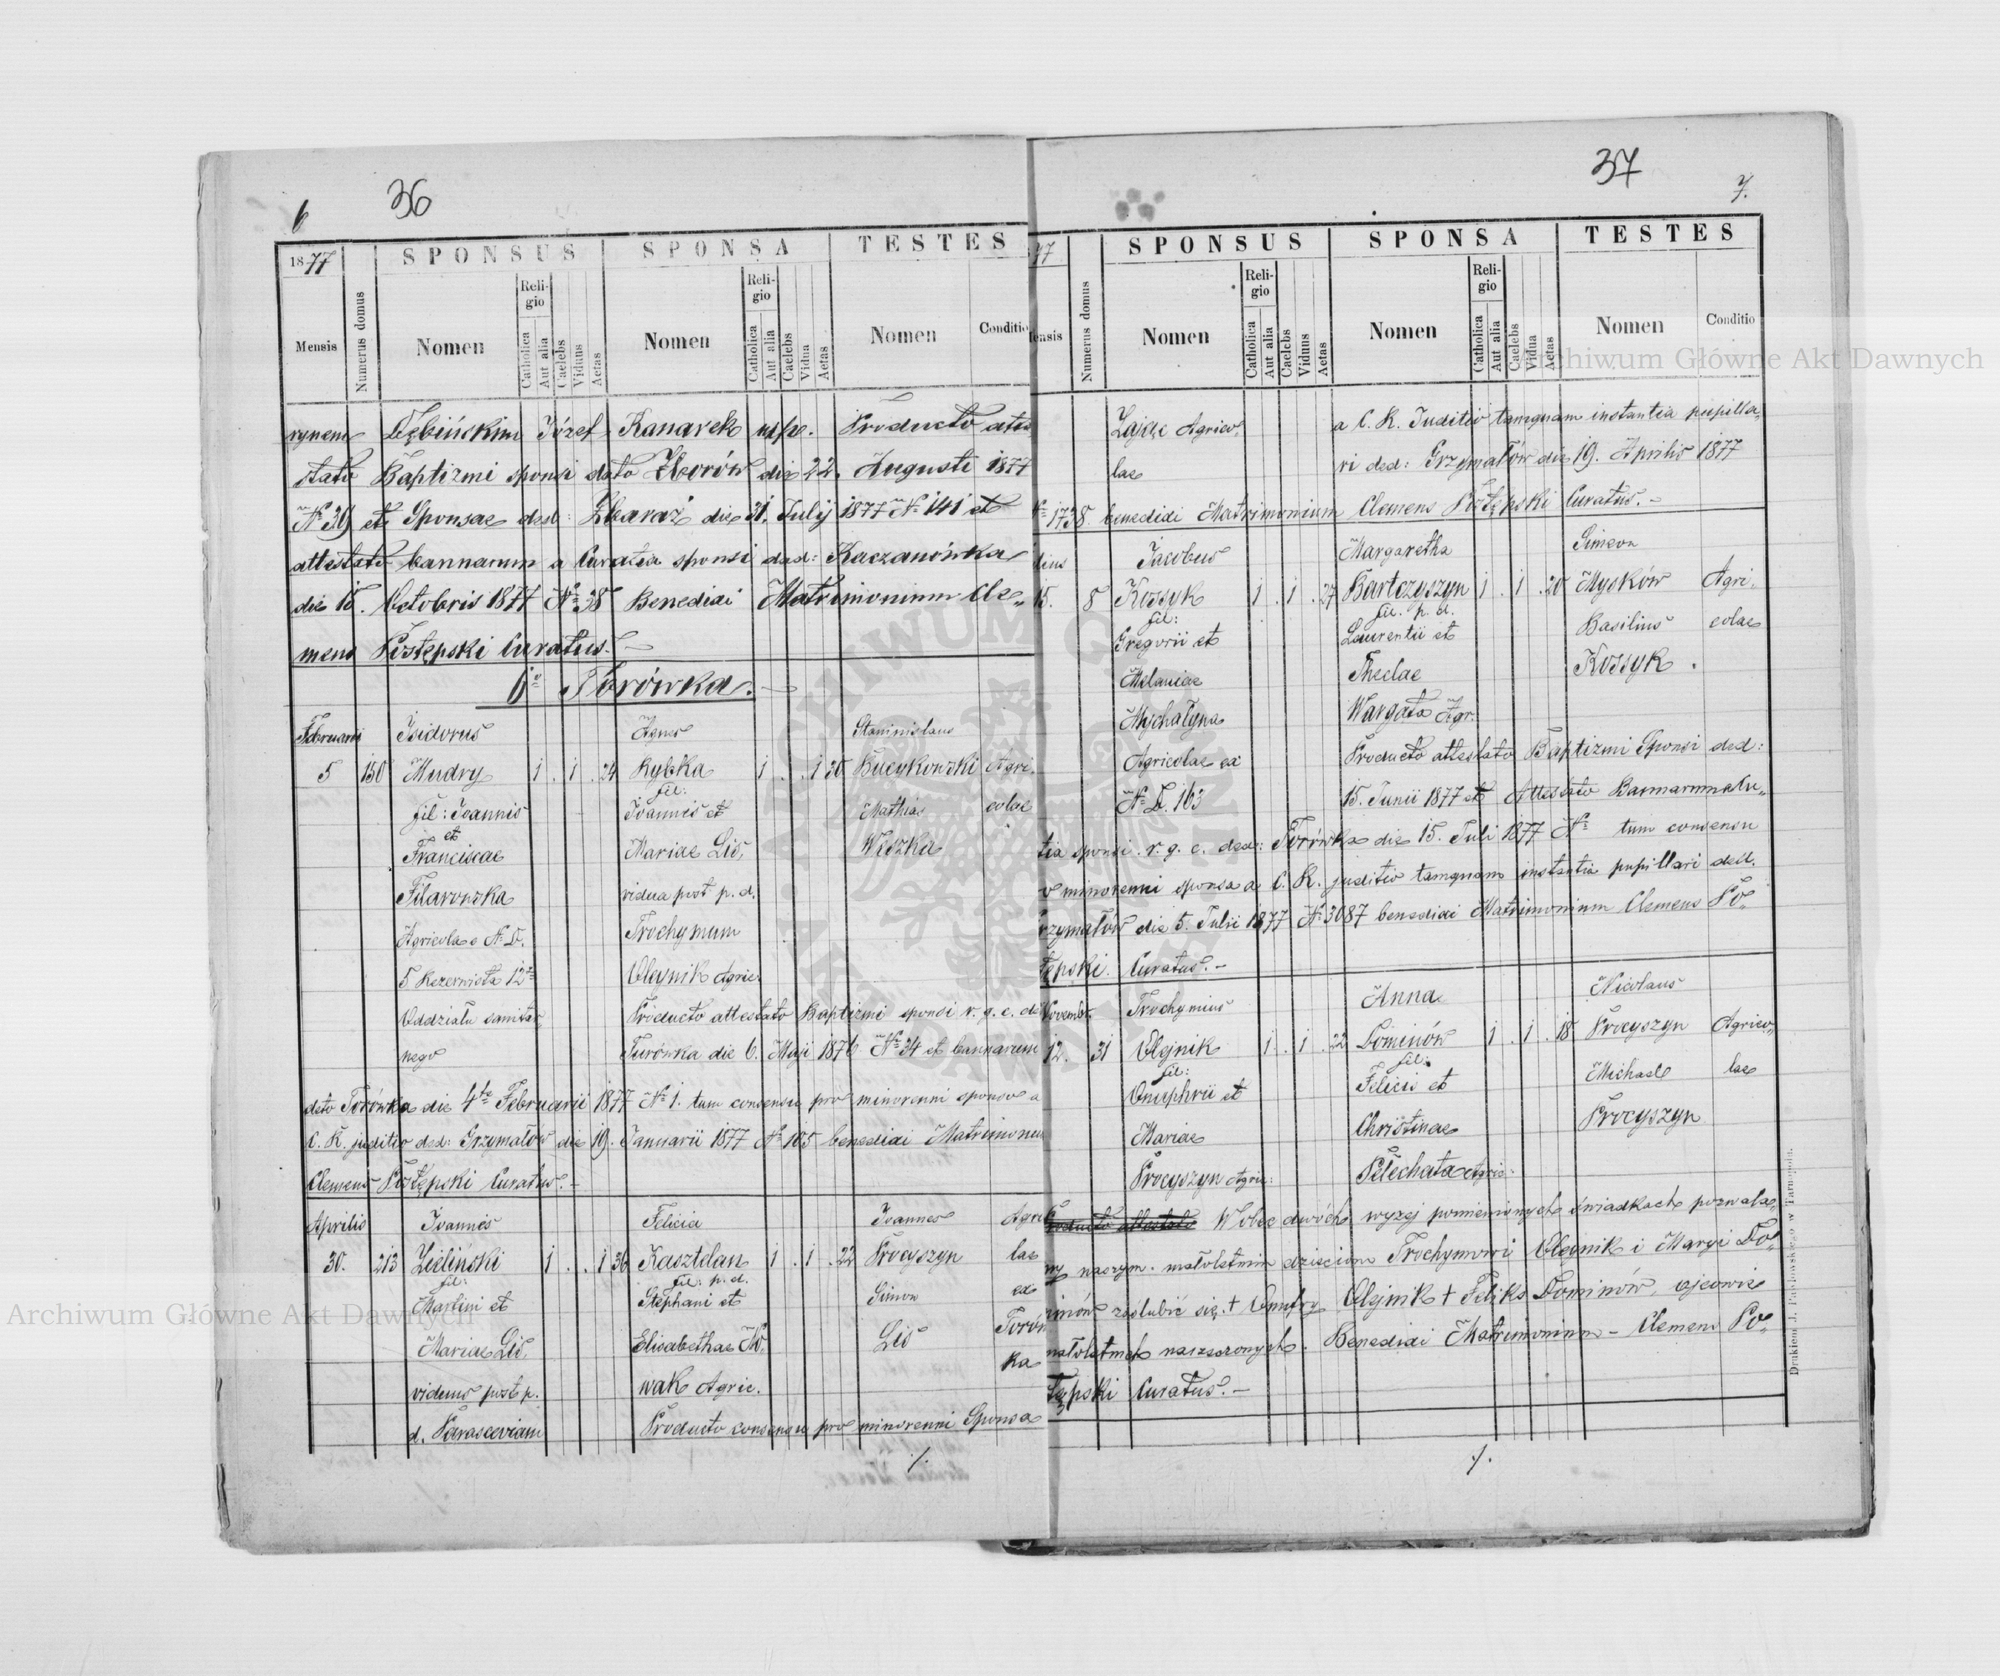 6
36
1877
SPONSUS
SPONSA
TESTES
Mensis
Numerus domus
Nomen
Religio
Catholica
Aut alia
Caelebs
Viduus
Aetas
Nomen
Religio
Catholica
Aut alia
Caelebs
Vidua
Aetas
Nomen
Conditio
rynem Dębińskim Józef Kanarek mp. Producto atte
stato Baptizmi sponsi dato Zborów die 22. Augusti 1877
№ 39 et Sponsae ded: Zbaraż die 31. Julij 1877 № 141 et
attestato bannarum a Curatia sponsi ded: Kaczanówka
die 15. Octobris 1877 № 38 Benedixi Matrimonium Cle„
mens Postępski Curatus. —
6° Torówka. —
Februarii Isidorus Agnes Stanislaus
5 150 Mudry 1 . 1 . 24 Rybka 1 . . 1 30 Buczkowski Agri„
fil: Joannis fil: Joannis et Mathias colae
et Franciscae Mariae Lis, Wiszka
Filarowska vidua post p. d.
Agricolae № D. Trochymum
5 Rezernista 12te Olejnik Agric.
Oddziału sanitar„ Producto attestato Baptizmi sponsi r. g. c. de
nego Turówka die 6. Maji 1876 № 34 et bannarum
dato Torówka die 4te Februarii 1877 № 1. tum consensu pro minorenni sponso a
C. K. juditio ded: Grzymałów die 19. Januarii 1877 № 105 benedixi Matrimonium
Clemens Postępski Curatus. —
Aprilis Joannes Felicia Joannes Agrico
30. 213 Zieliński 1 . . 1 36 Kasztelan 1 . 1 . 22 Procyszyn lae
fil: Martini et fil: p. d. Stephani et Simon ex
Mariae Lis, Elisabethae No, Lis Torow
viduus post p. wak Agric. ka
d. Parasceviam Producto consensu pro minorenni Sponsa
./.
37
7.
77
SPONSUS
SPONSA
TESTES
Mensis
Numerus domus
Nomen
Religio
Catholica
Aut alia
Caelebs
Viduus
Aetas
Nomen
Religio
Catholica
Aut alia
Caelebs
Vidua
Aetas
Nomen
Conditio
Zając Agrico„ a C. K. Juditio tamquam instantia pupilla„
lae ri ded: Grzymałów die 19. Aprilis 1877
№ 1738. benedixi Matrimonium Clemens Postępski Curatus. —
Jacobus Margaretha Simeon
15. 8 Kossyk 1 . 1 . 27 Bartczyszyn 1 . 1 . 20 Mysków Agri„
fil: Gregorii et fil. p. d. Laurentii et Basilius colae
Melaniae Theclae Kossyk .
Michałyna Wargata Agr.
Agricolae ex Producto attestato Baptizmi Sponsi ded:
№ D. 163 15. Junii 1877 et Attestato Bannarum a Cu„
tia sponsi. r. g. c. ded: Torówka die 15. Juli 1877 № tum consensu
o minorenni sponsa a C. K. juditio tamquam instantia pupillari ded.
rzymałów die 5. Julii 1877 № 3087 benedixi Matrimonium Clemens Po„
tępski Curatus. —
Novembr. Trochymius Anna Nicolaus
12. 31 Olejnik 1 . 1 . 22 Dominów 1 . 1 . 18 Procyszyn Agrico„
fil: Onuphrii et fil: Felicis et Michael lae
Mariae Christinae Procyszyn
Procyszyn Agric: Pelechata Agric:
Producto attestato Wobec dwóch wyżej pomienionych świadkach pozwala„
my naszym małoletnim dzieciom Trochymowi Olejnik i Maryi Do„
minów zaślubić się. + Onufry Olejnik + Feliks Dominów, ojcowie
małoletnich narzeczonych. Benedixi Matrimonium – Clemens Po„
stępski Curatus. —
./.
Drukiem J. Pawłowskiego w Tarnopolu.
Archiwum Główne Akt Dawnych
Archiwum Główne Akt Dawnych
ARCHIWUM GŁÓWNE AKT DAWNYCH